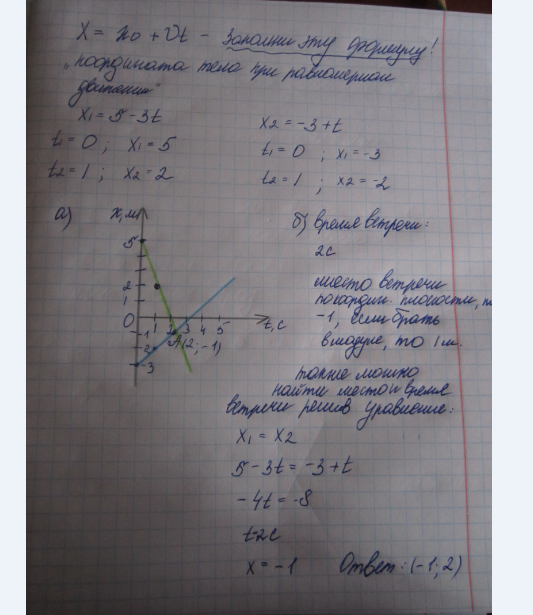 x = x₀ + υt - Запомни эту формулу!
"координата тела при равномерном
движении"
x₁ = 5 - 3t
t₁ = 0 ; x₁ = 5
t₂ = 1 ; x₂ = 2
x₂ = -3 + t
t₁ = 0 ; x₁ = -3
t₂ = 1 ; x₂ = -2
а)
x, м
5
2
1
0
-1
-2
-3
1 2 3 4 5
t, с
A(2; -1)
б) время встречи:
2с
место встречи
по коорди плоскости,
-1, если брать
в модуле, то 1 м.
также можно
найти место и время
встречи решив уравнение:
x₁ = x₂
5 - 3t = -3 + t
-4t = -8
t=2c
x = -1
Ответ: (-1; 2)